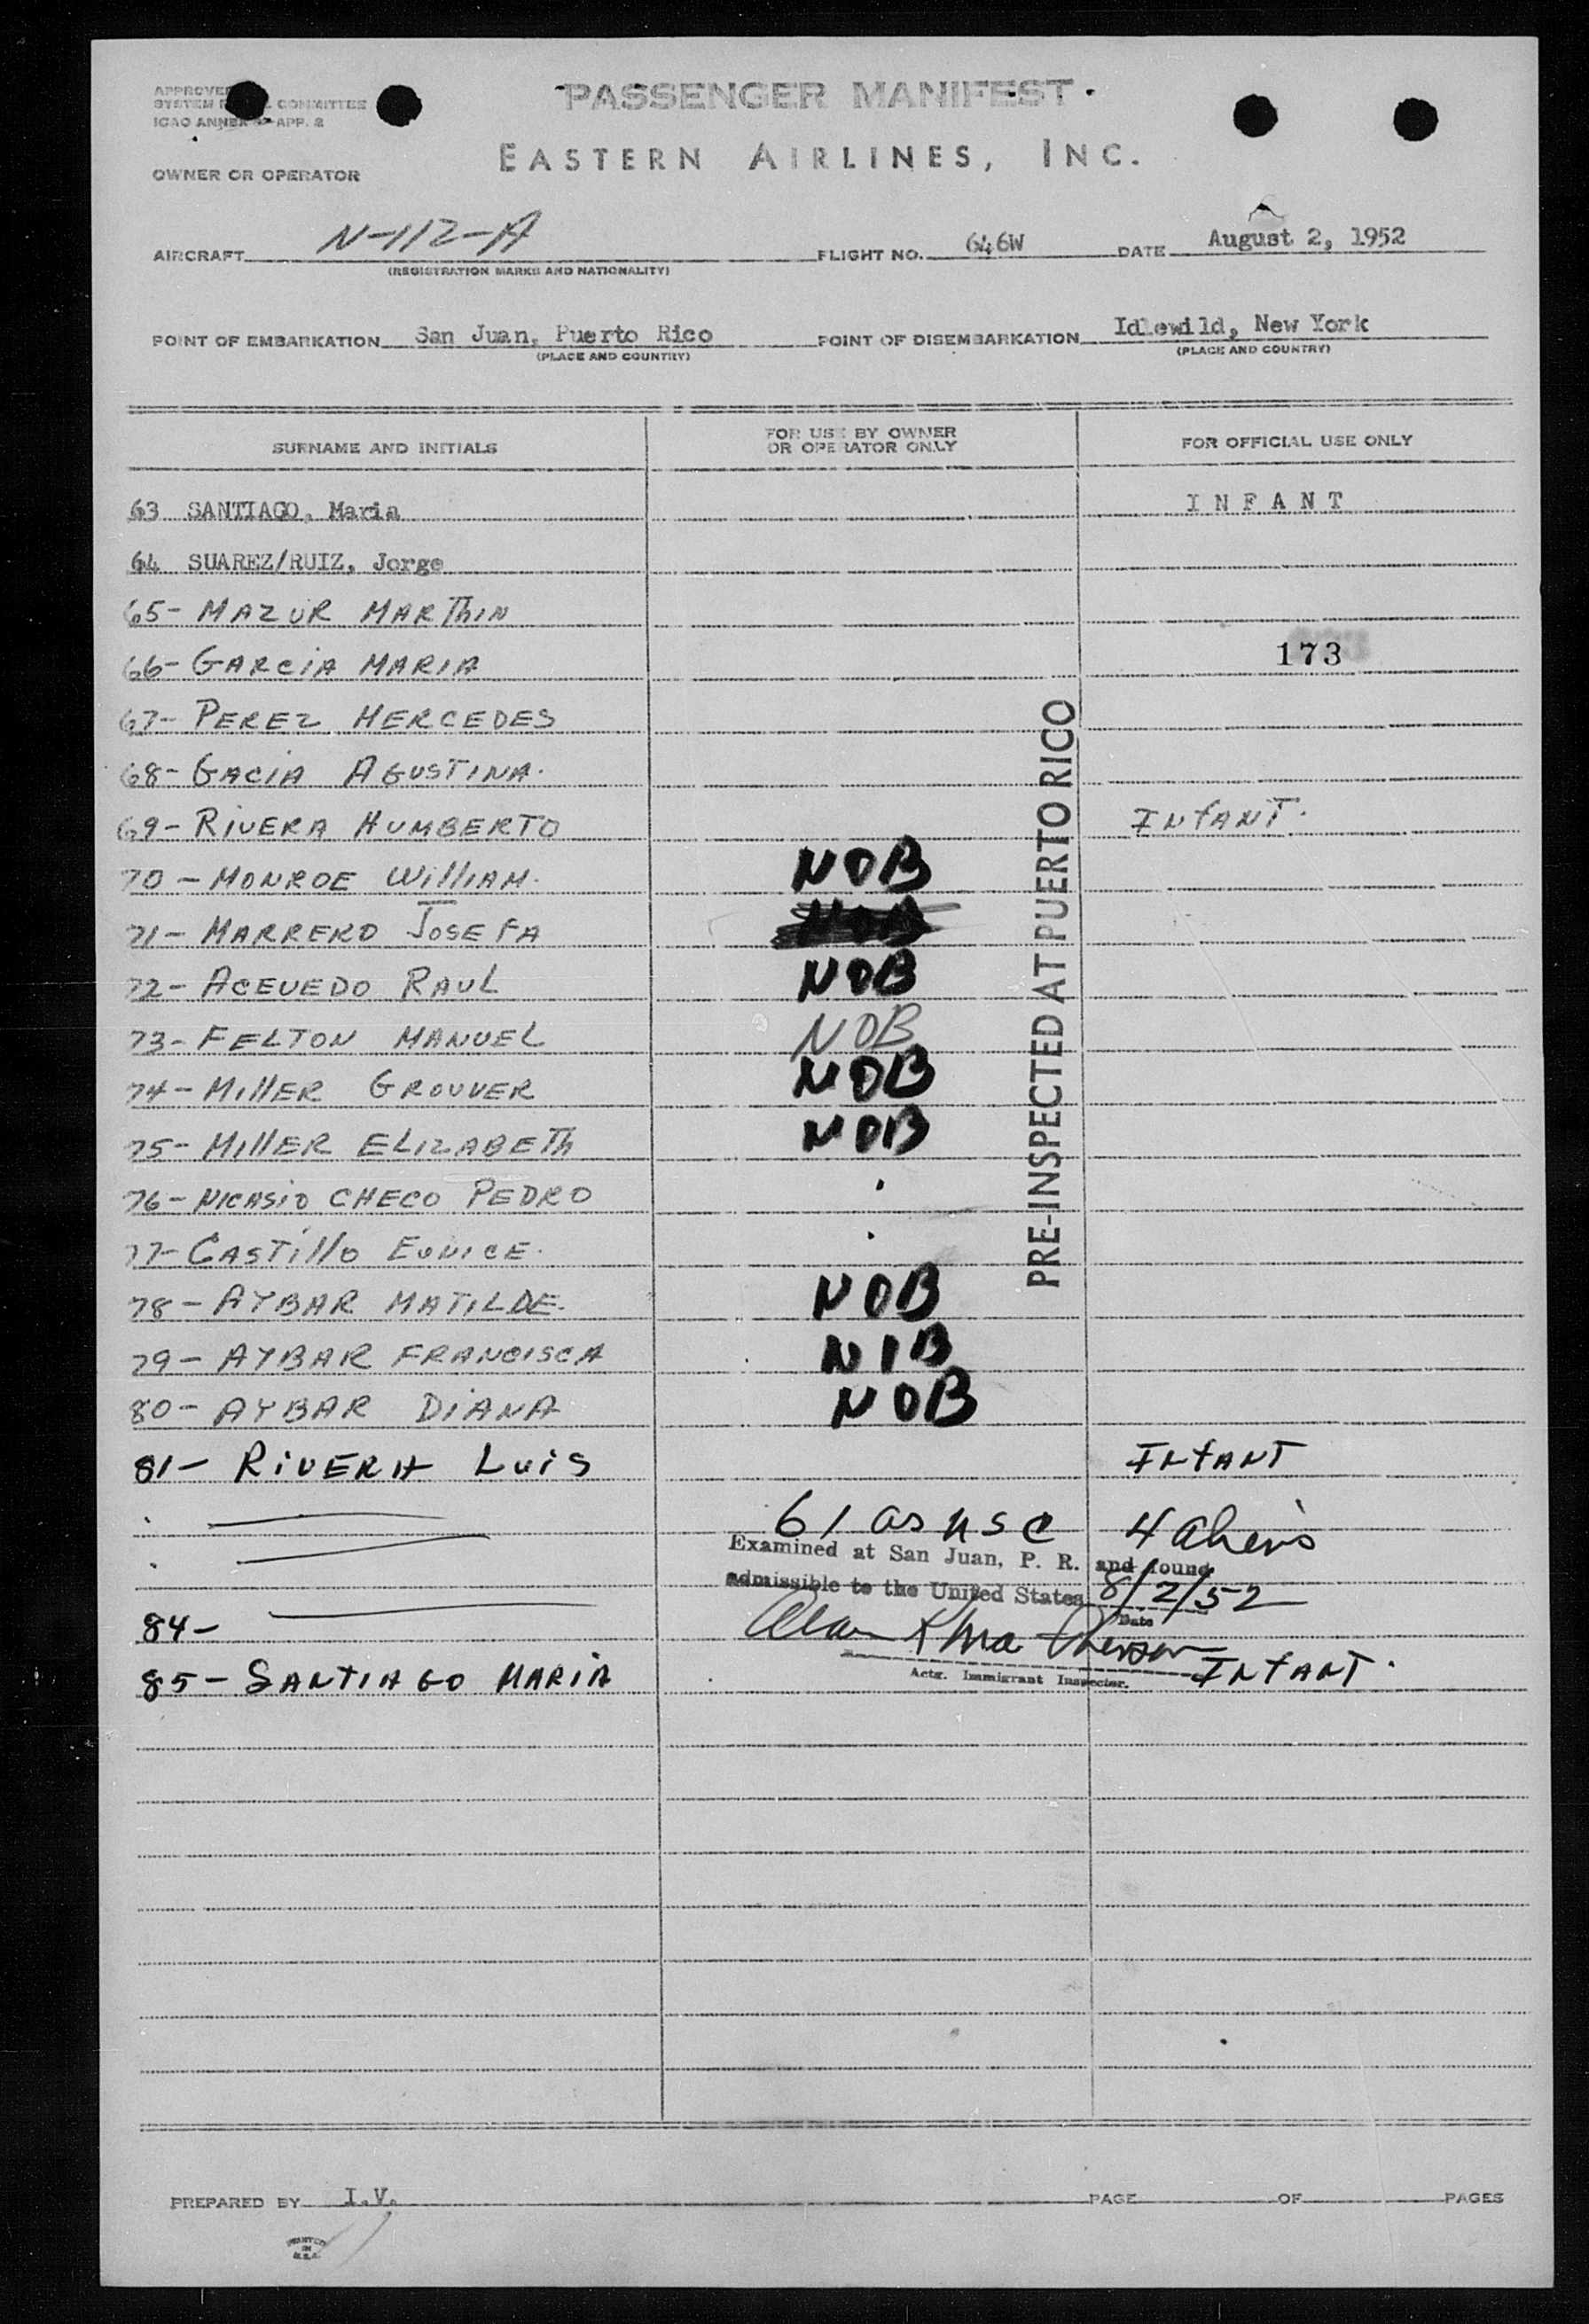 APPROVED
SYSTEM COMMITTEE
ICAO ANNEX APP. 2
PASSENGER MANIFEST
EASTERN AIRLINES, INC.
OWNER OR OPERATOR
AIRCRAFT N-112-A FLIGHT NO. 646W DATE August 2, 1952
(REGISTRATION MARKS AND NATIONALITY)
POINT OF EMBARKATION San Juan, Puerto Rico POINT OF DISEMBARKATION Idlewild, New York
(PLACE AND COUNTRY) (PLACE AND COUNTRY)
SURNAME AND INITIALS FOR USE BY OWNER OR OPERATOR ONLY FOR OFFICIAL USE ONLY
63 SANTIAGO, Maria INFANT
64 SUAREZ/RUIZ, Jorge
65- MAZUR MARThIN
66- GARCiA MARIA 173
67- PEREZ MERCEDES
68- GACiA AGUSTINA.
69- RIVERA HUMBERTO INfANT.
70- MONROE WilliAM. NOB
71- MARRERO JOSEFA NOB
72- ACEVEDO RAUL NOB
73- FELTON MANUEL NOB
74- MillER GROUVER NOB
75- MillER ELIZABETh NOB
76- NICASIO CHECO PEDRO
77- CASTillo EUNICE.
78- AYBAR MATILDE. NOB
79- AYBAR FRANCISCA NIB
80- AYBAR DiANA NOB
PRE-INSPECTED AT PUERTO RICO
81- RiVERA LUiS INfANT
61 as usc 4 aliens
Examined at San Juan, P. R. and found
admissible to the United States 8/2/52
Date
84-
85- SANTIAGO MARiA INfANT.
Actg. Immigrant Inspector.
PREPARED BY I.V. PAGE OF PAGES
PRINTED
IN
U.S.A.